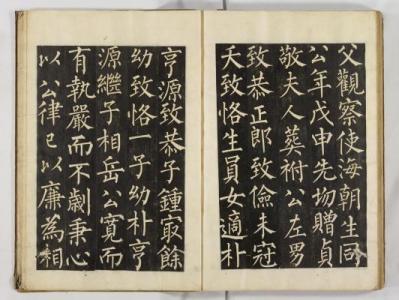 父觀察使海朝生同
公年戊申先切贈貞
敬夫人葬祔公左男
致恭正郎致儉未冠
夭致恪生員女適朴
亨源致恭子鍾㝡餘
幼致恪一子幼朴亨
源繼子相岳公寬而
有執嚴而不劌秉心
以公律已以廉為相